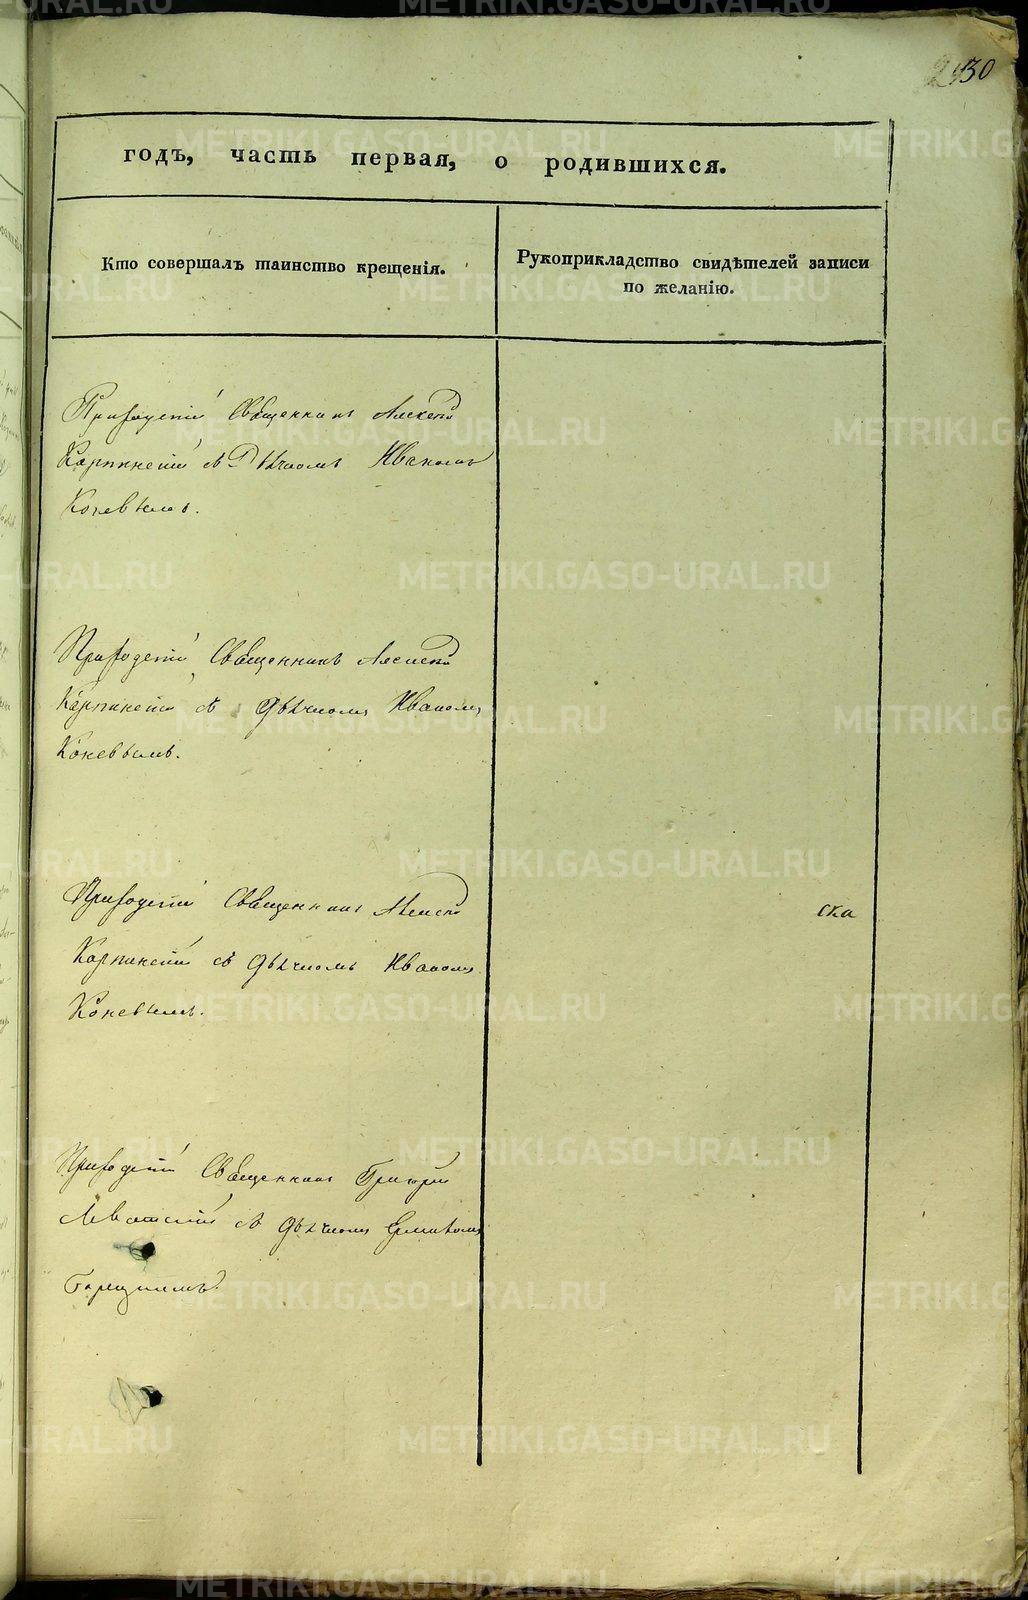 430
годъ, часть первая, о родившихся.
Кто совершалъ таинство крещенія.
Рукоприкладство свидѣтелей записи
по желанію.
Приходскій Священникъ Алексѣй
Карпинскій съ Дьячкомъ Иваномъ
Коневымъ.
Приходскій Священникъ Алексѣй
Карпинскій съ Дьячкомъ Иваномъ
Коневымъ.
Приходскій Священникъ Алексѣй
Карпинскій съ Дьячкомъ Иваномъ
Коневымъ.
ска
Приходскій Священникъ Григорій
съ Дьячкомъ
METRIKI.GASO-URAL.RU